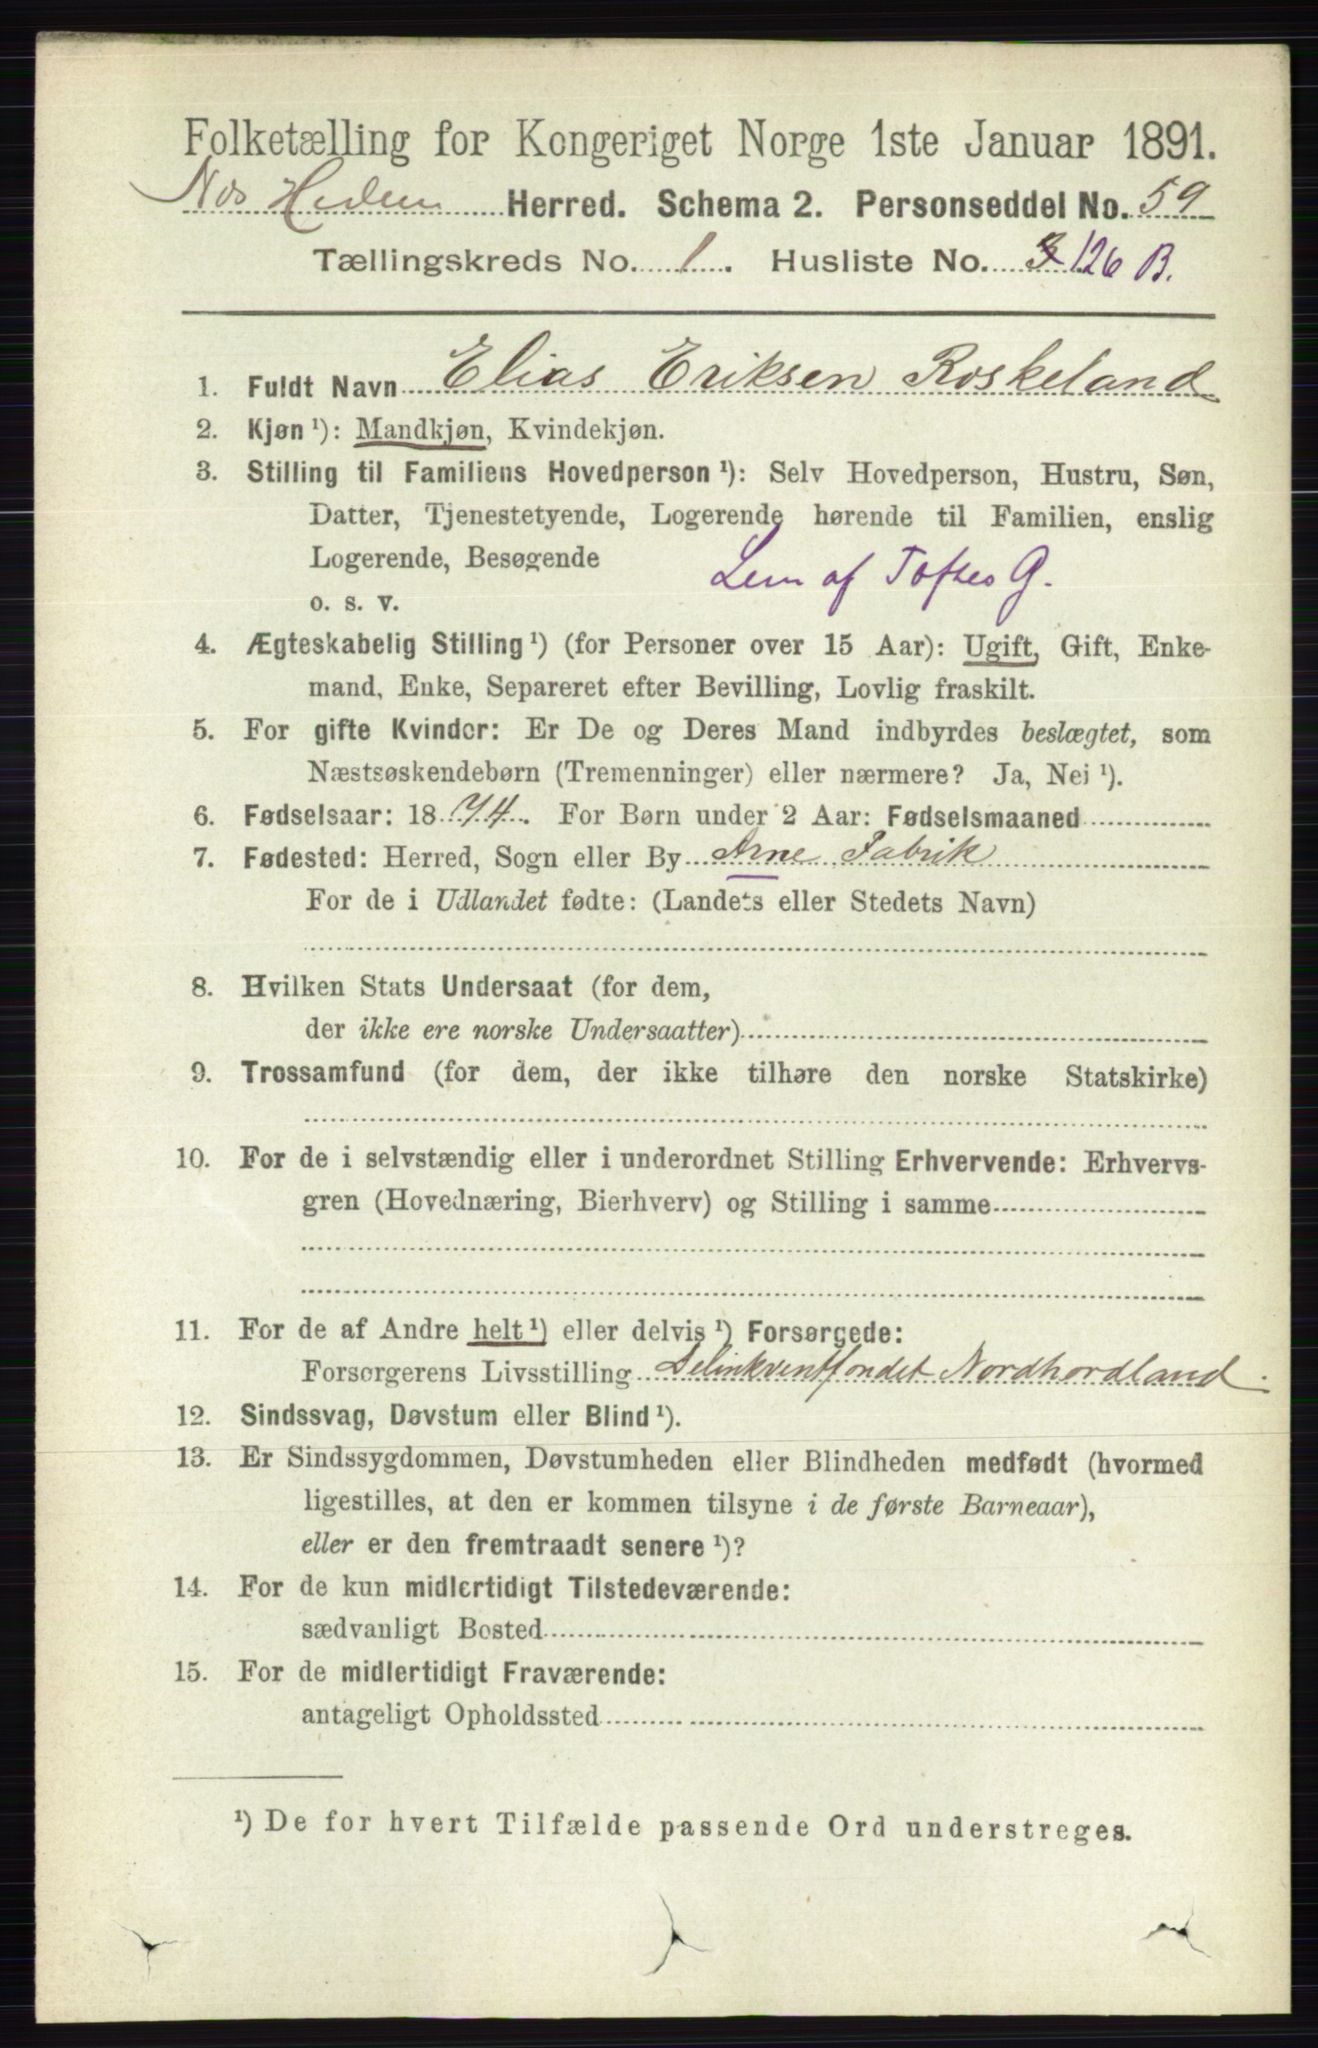 Folketælling for Kongeriget Norge 1ste Januar 1891.
Nes Hedem Herred. Schema 2. Personseddel No. 59
Tællingskreds No. 1. Husliste No. 3 126 B.
1. Fuldt Navn Elias Eriksen Roskeland
2. Kjøn ¹): Mandkjøn, Kvindekjøn.
3. Stilling til Familiens Hovedperson ¹): Selv Hovedperson, Hustru, Søn,
Datter, Tjenestetyende, Logerende hørende til Familien, enslig
Logerende, Besøgende
o. s. v. Lem af Toftes G.
4. Ægteskabelig Stilling ¹) (for Personer over 15 Aar): Ugift, Gift, Enke-
mand, Enke, Separeret efter Bevilling, Lovlig fraskilt.
5. For gifte Kvinder: Er De og Deres Mand indbyrdes beslægtet, som
Næstsøskendebørn (Tremenninger) eller nærmere? Ja, Nei ¹).
6. Fødselsaar: 1874. For Børn under 2 Aar: Fødselsmaaned
7. Fødested: Herred, Sogn eller By Arne Fabrik
For de i Udlandet fødte: (Landets eller Stedets Navn)
8. Hvilken Stats Undersaat (for dem,
der ikke ere norske Undersaatter)
9. Trossamfund (for dem, der ikke tilhøre den norske Statskirke)
10. For de i selvstændig eller i underordnet Stilling Erhvervende: Erhvervs-
gren (Hovednæring, Bierhverv) og Stilling i samme
11. For de af Andre helt ¹) eller delvis ¹) Forsørgede:
Forsørgerens Livsstilling Delinkventfondet Nordhordland.
12. Sindssvag, Døvstum eller Blind ¹).
13. Er Sindssygdommen, Døvstumheden eller Blindheden medfødt (hvormed
ligestilles, at den er kommen tilsyne i de første Barneaar),
eller er den fremtraadt senere ¹)?
14. For de kun midlertidigt Tilstedeværende:
sædvanligt Bosted
15. For de midlertidigt Fraværende:
antageligt Opholdssted
¹) De for hvert Tilfælde passende Ord understreges.